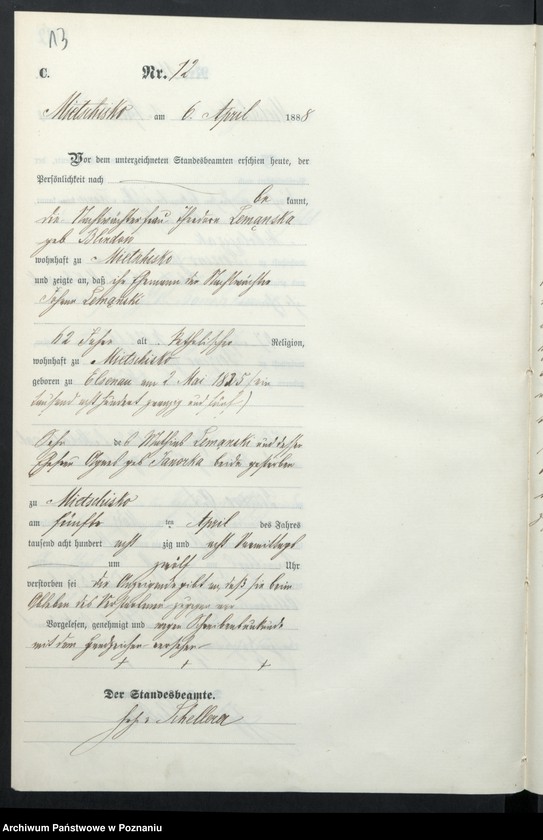 13
C.
Nr. 12
Mietschisko am 6. April 1888
Vor dem unterzeichneten Standesbeamten erschien heute, der
Persönlichkeit nach
be kannt,
die Nachtwächterfrau Lemąnska
geb Blindow
wohnhaft zu Mietschisko
und zeigte an, daß ihr Ehemann der Nachtwächter
Johann Lemąnski
62 Jahre alt katholischer Religion,
wohnhaft zu Mietschisko
geboren zu Elsenau am 2 Mai 1825 (ein
tausend acht hundert zwanzig und fünf)
Sohn des Mathias Lemąnski und dessen
Ehefrau Agnes geb Janorka beide gestorben
zu Mietschisko
am fünften ten April des Jahres
tausend acht hundert acht zig und acht Vormittags
um zwölf Uhr
verstorben sei die Anzeigende gibt an, daß sie beim
Ableben des Verstorbenen zugegen war
Vorgelesen, genehmigt und wegen Schreibensunkunde
mit dem Handzeichen versehen
+ + +
Der Standesbeamte.
Archiwum Państwowe w Poznaniu